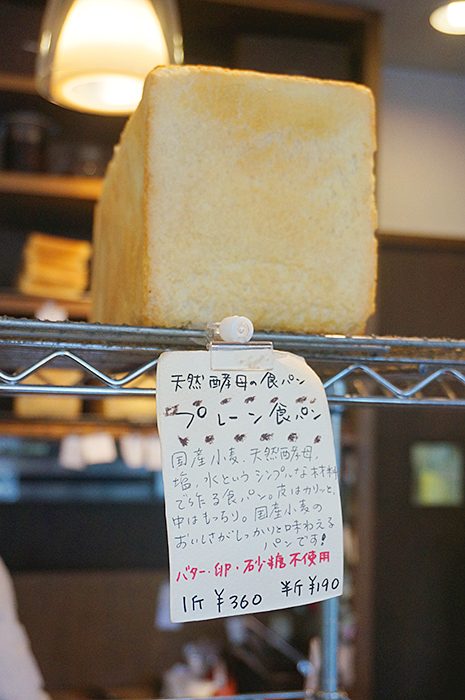 天然酵母の食パン
プレーン食パン
国産小麦、天然酵母、
塩、水というシンプルな材料
で作る食パン。皮はカリッと、
中はもっちり。国産小麦の
おいしさがしっかりと味わえる
パンです!
バター・卵・砂糖不使用
1斤 ¥360 半斤 ¥190